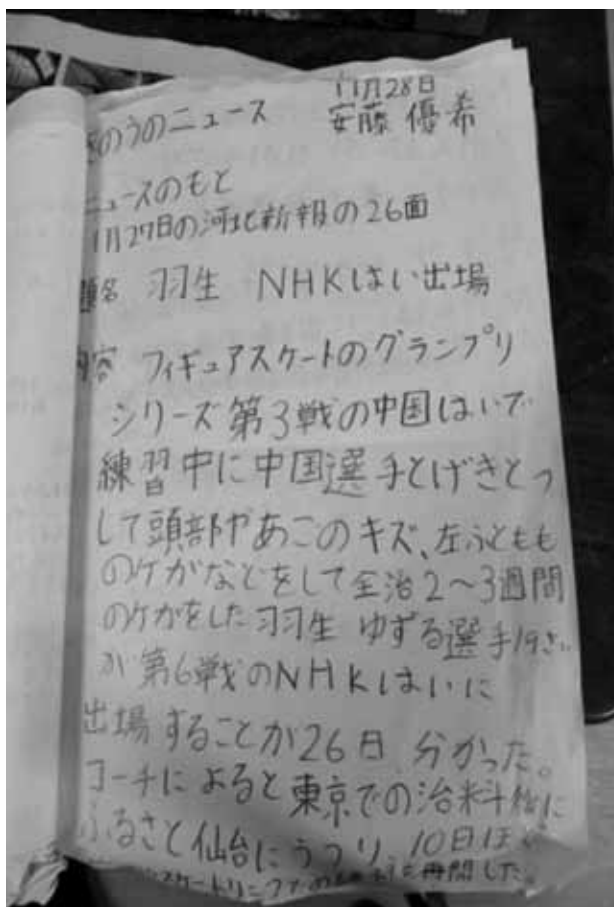 11月28日
きのうのニュース 安藤優希
ニュースのもと
11月27日の河北新報の26面
題名 羽生 NHKはい出場
内容 フィギュアスケートのグランプリ
シリーズ第3戦の中国はいで
練習中に中国選手とげきとつ
して頭部やあごのキズ、左ふともも
のケガなどをして全治2〜3週間
のケガをした羽生 ゆずる選手19さい
が第6戦のNHKはいに
出場することが26日 分かった。
コーチによると東京での治料後に
ふるさと仙台にうつり、10日ほど
再開した。